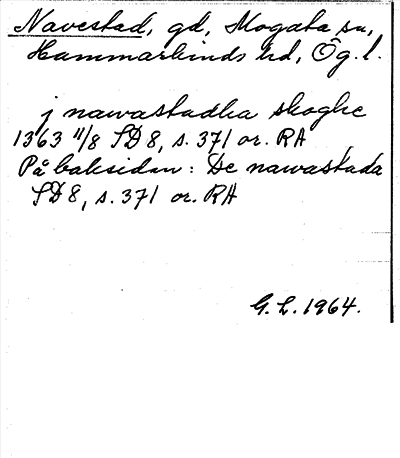 Navestad, gd, Mogata sn,
Hammarkinds hd, Ög.l.
j nawastadha skoghe
1363 11/8 SD 8, s. 371 or. RA
På baksidan: De nawastada
SD 8, s. 371 or. RA
G. L. 1964.